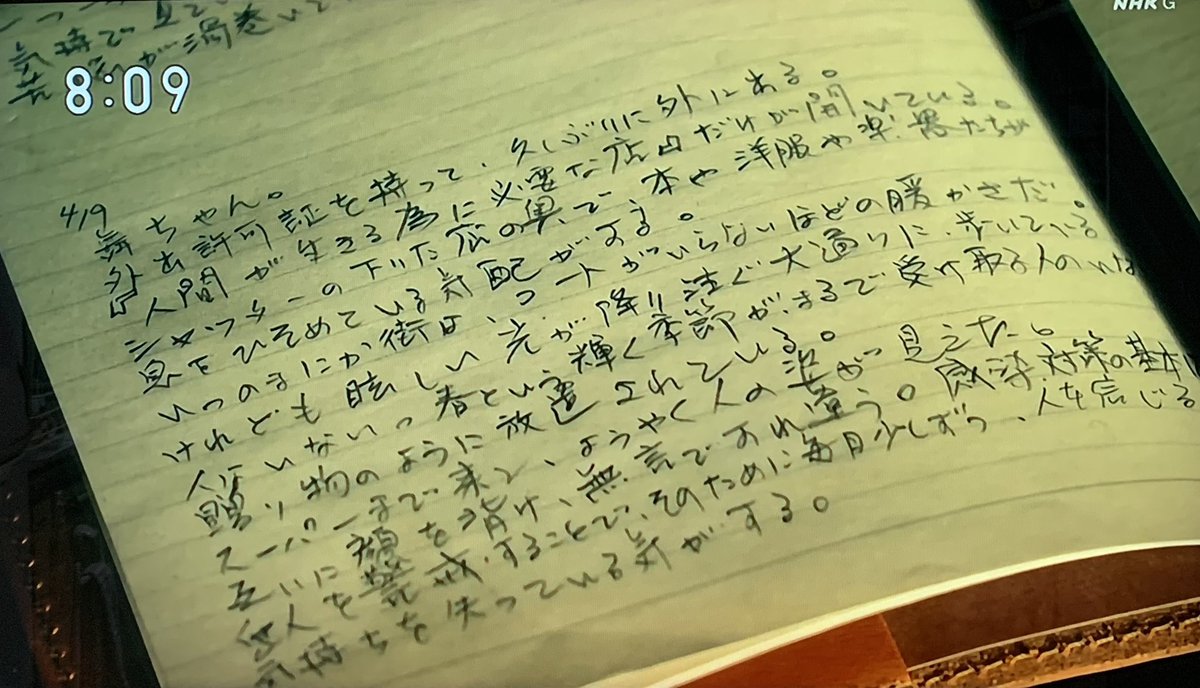 NHK G
8:09
気持で見て
が渦巻いて
4/9
舞ちゃん。
外出許可証を持って、久しぶりに外に出る。
人間が生きる為に必要な店だけが開いている。
シャッターの下りた店の奥で本や洋服や楽器たちが
息をひそめている気配がする。
いつのまにか街は、コートがいらないほどの暖かさだ。
けれども眩しい光が降り注ぐ大通りに、歩いている
人はいない。春という輝く季節が、まるで受け取る人のいな
贈り物のように放置されている。
スーパーまで来て、ようやく人の姿が見えた。
互いに顔を背け、無言ですれ違う。感染対策の基本は
人を警戒することで、そのために毎日少しずつ、人を信じる
気持ちを失っている気がする。